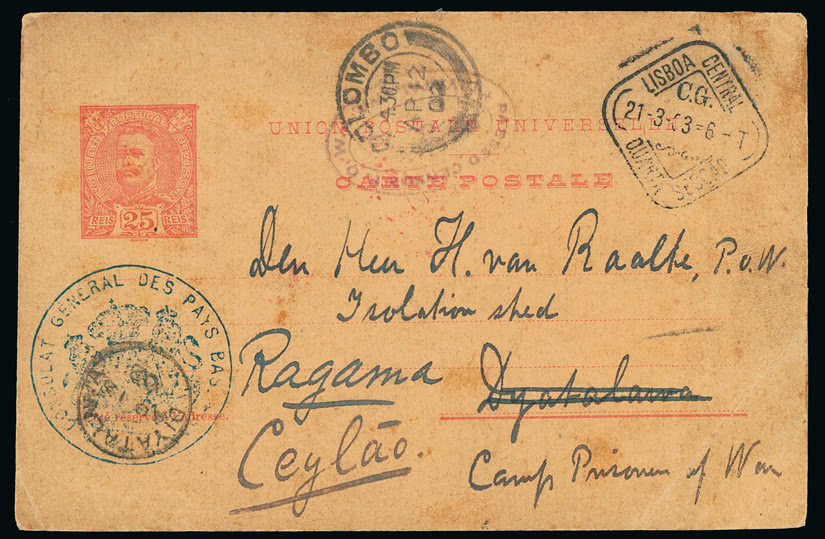 COLOMBO
4.30PM
AP 12
02
LISBOA CENTRAL
C.G.
21-3-
6-T
QUARTA SECÇÃO
UNION POSTALE UNIVERSELLE
CARTE POSTALE
PORTUGAL
REIS 25 REIS
Den Heer H. van Raalte, P.o.W.
Isolation shed
Ragama Dyatalawa
Ceylão.
Camp Prisoners of War
CONSULAT GENERAL DES PAYS BAS
réservé à l'adresse.
DIYATALAWA